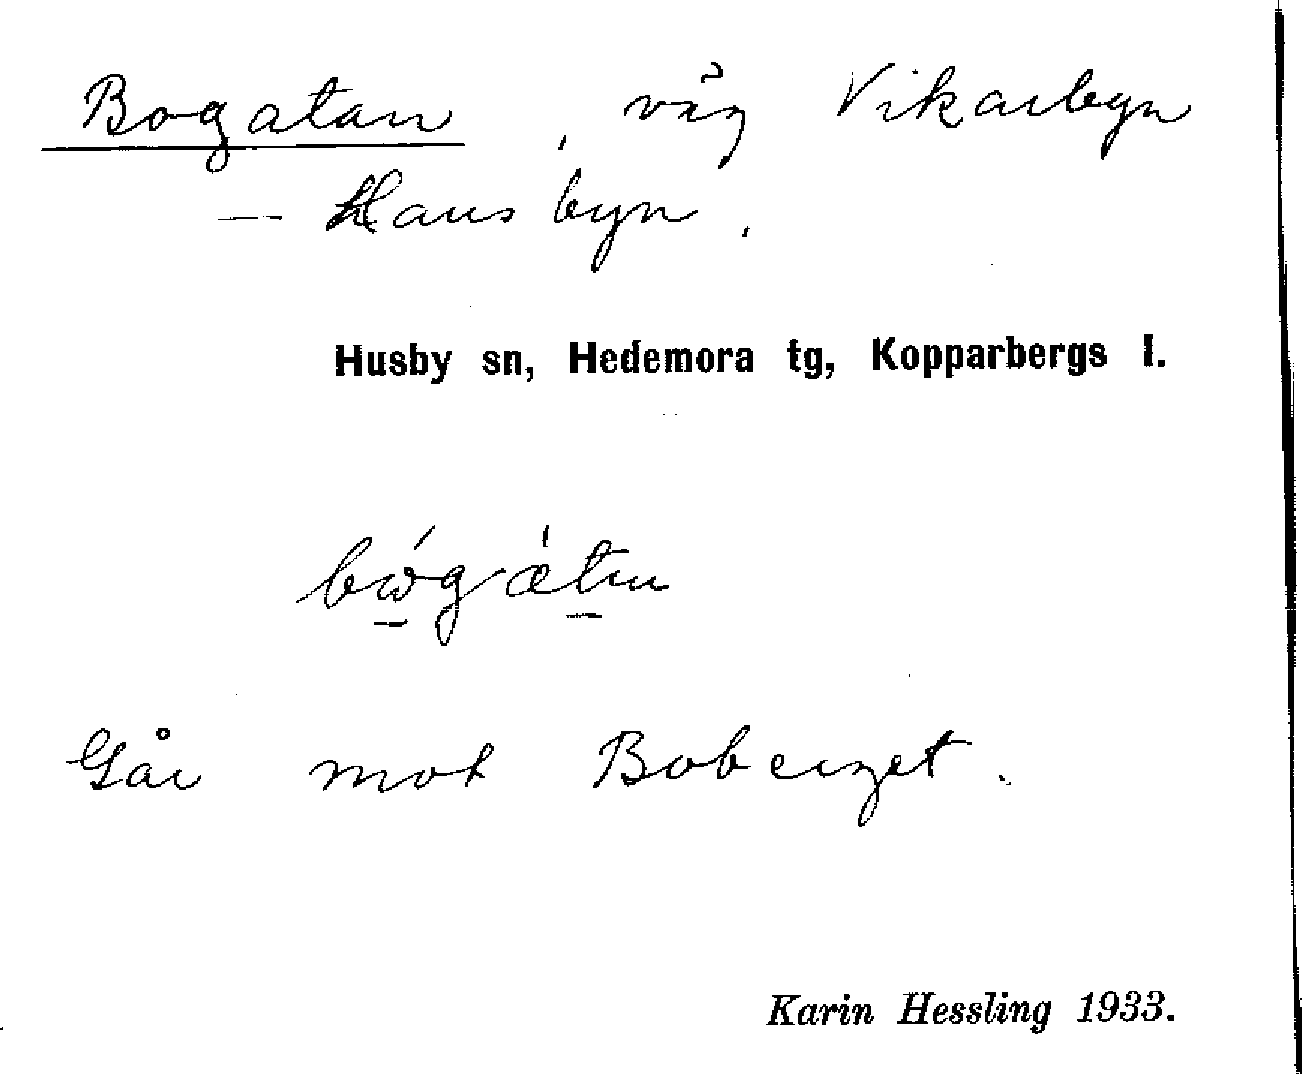 Bogatan, väg Vikarbyn
— Hansbyn.
Husby sn, Hedemora tg, Kopparbergs l.
Går mot Boberget.
Karin Hessling 1933.